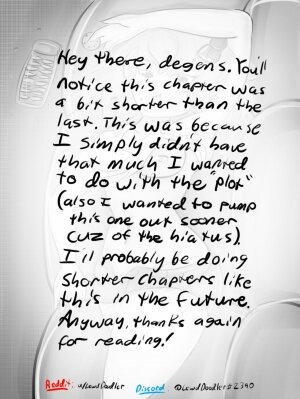 Hey there, degens. You'll
notice this chapter was
a bit shorter than the
last. This was because
I simply didn't have
that much I wanted
to do with the "plot"
(also I wanted to pump
this one out sooner
cuz of the hiatus).
I'll probably be doing
shorter chapters like
this in the future.
Anyway, thanks again
for reading!
Reddit: u/LewdDoodler Discord: @LewdDoodler#2390